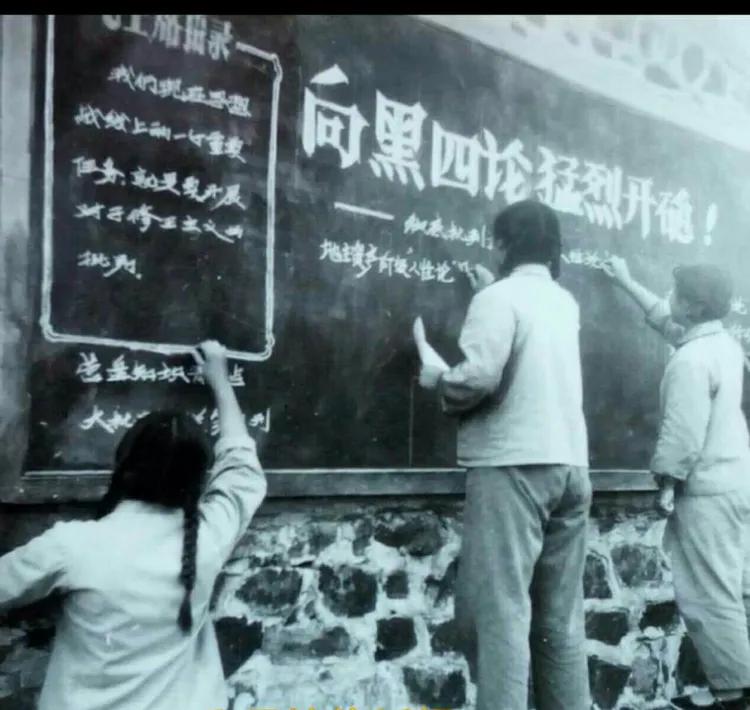 毛主席语录
我们现在思想
战线上的一个重要
任务，就是要开展
对于修正主义的
批判。
向黑四论猛烈开砲！
彻底批判
人性论
地主资产阶级“人性论”
知识青年
大批判